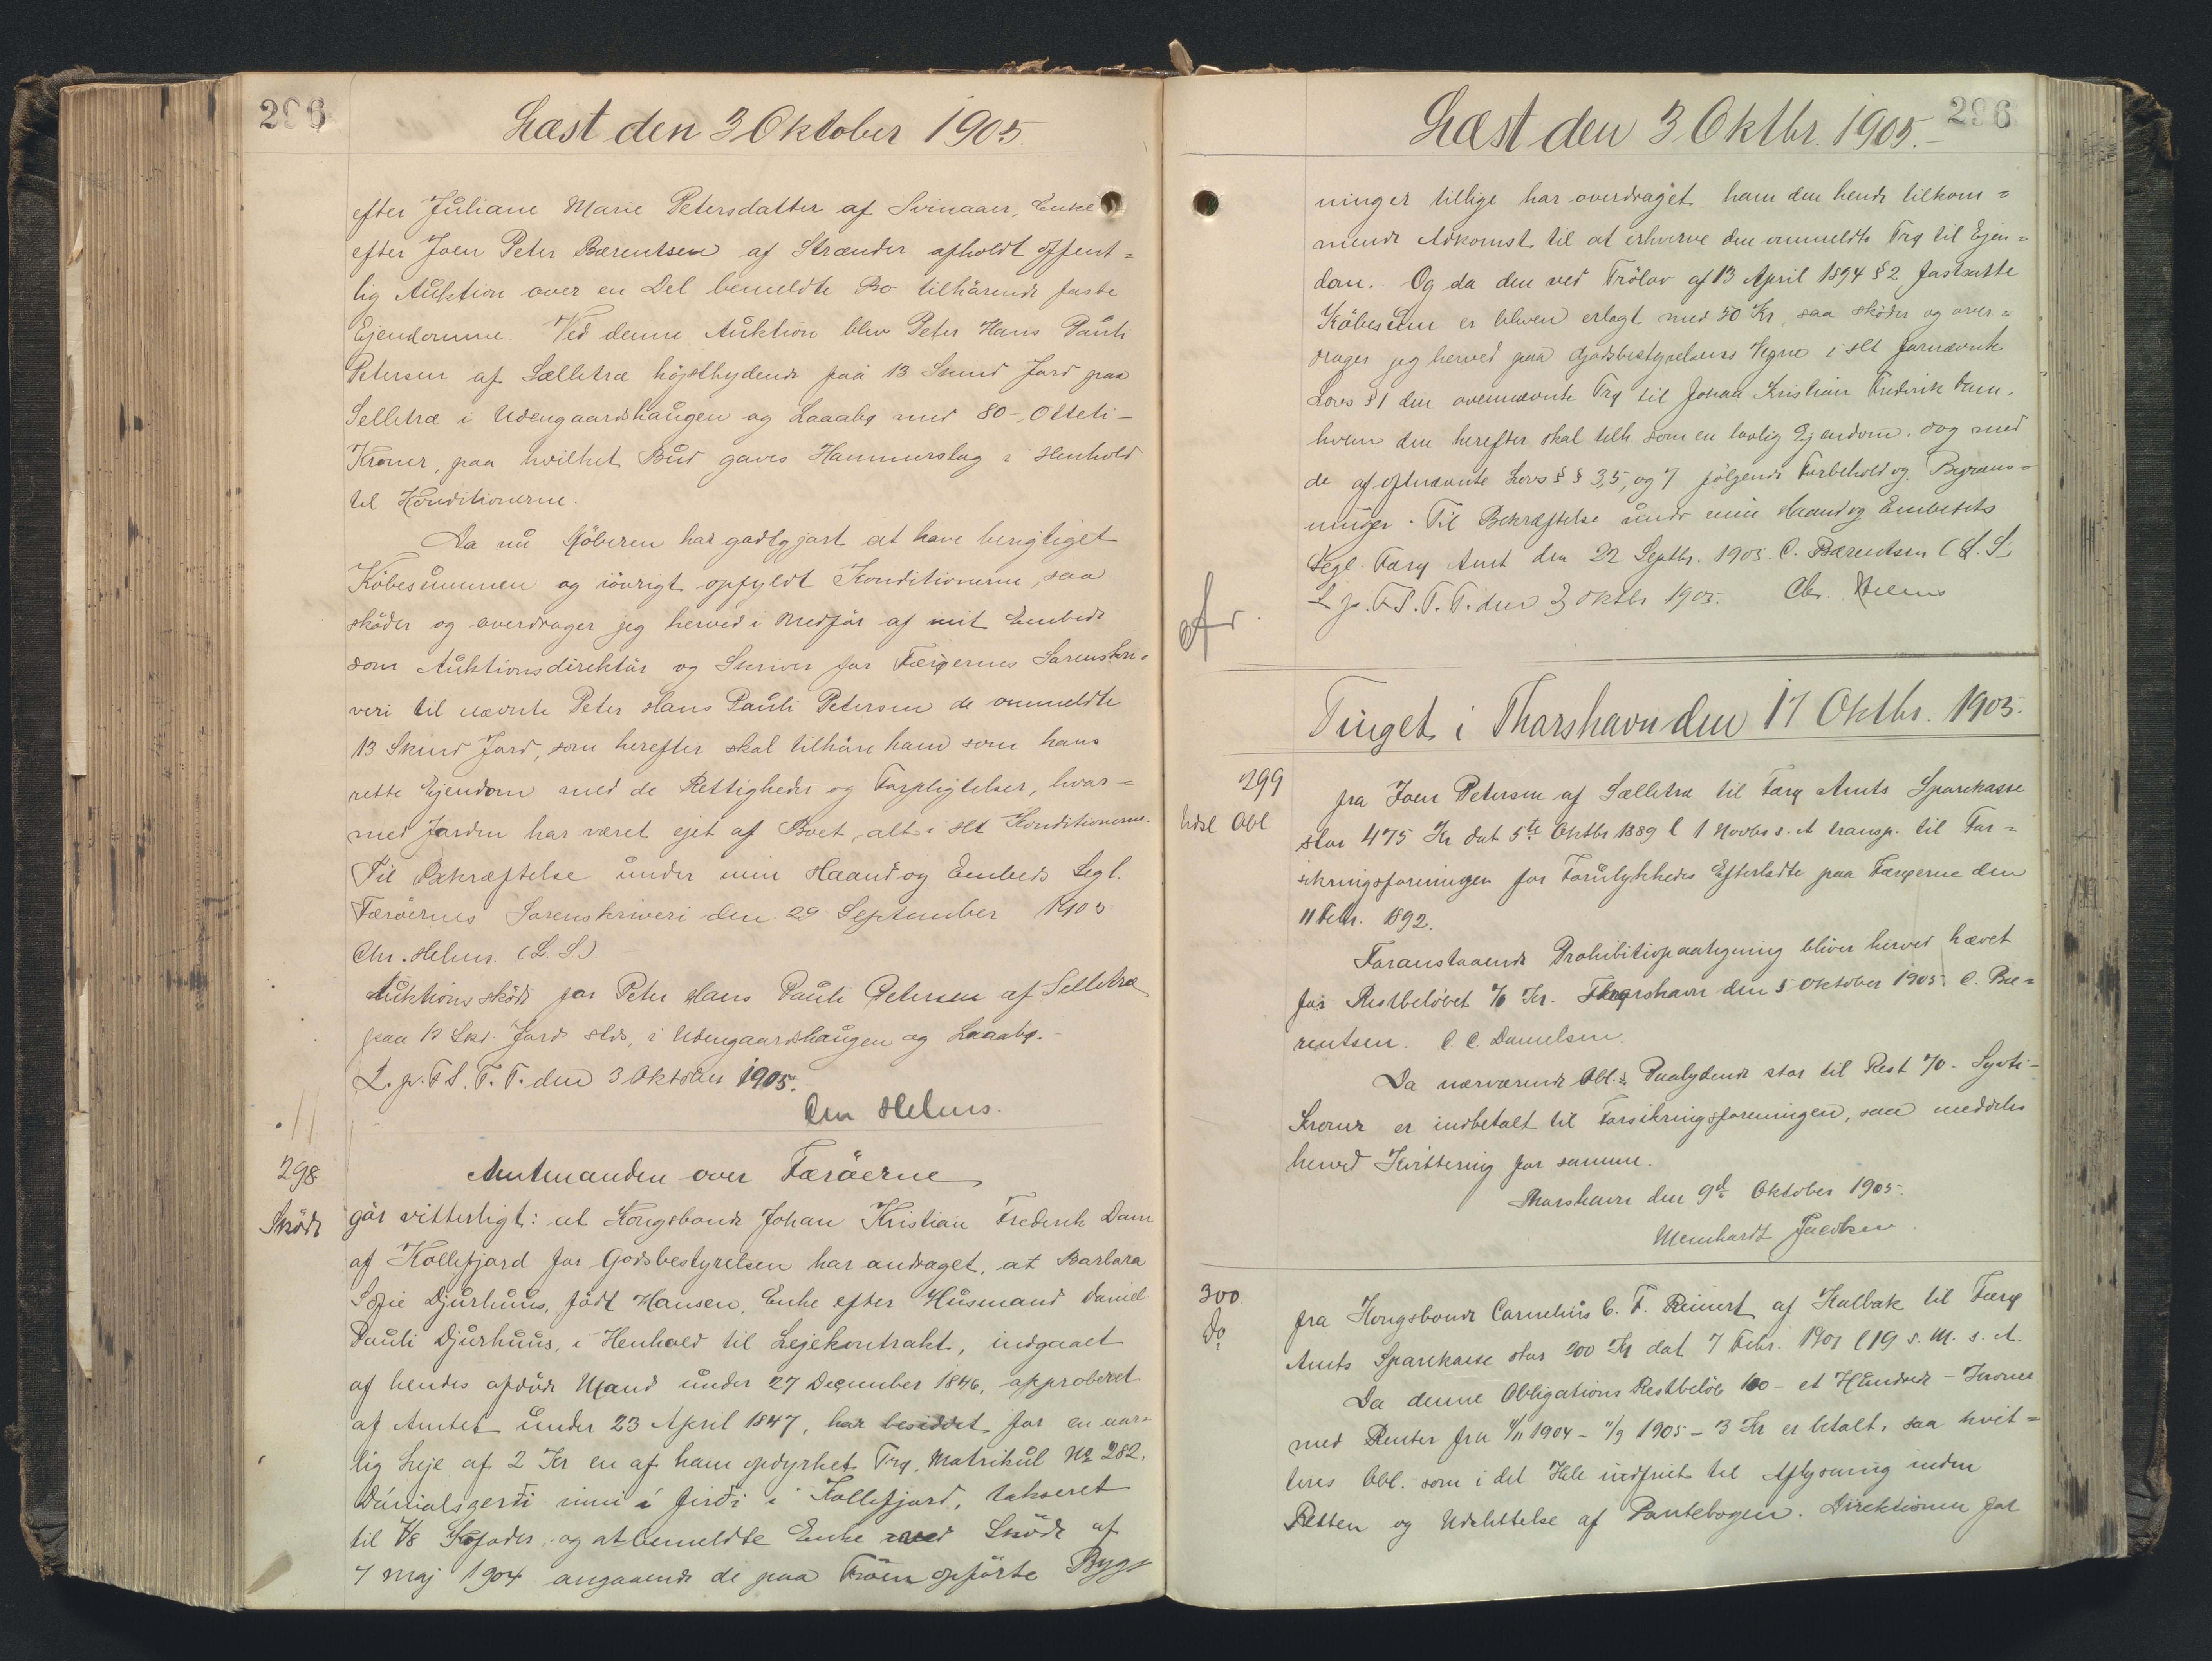 296
Læst den 3 Oktober 1905.
efter Juliane Marie Petersdatter af Svinaaer, Enke
efter Joen Peter Bærentsen af Strænder afholdt offent=
lig Auktion over en Del bemeldte Bo tilhörende faste
Ejendomme. Ved denne Auktion blev Peter Hans Pauli
Petersen af Selletræ höjstbydende paa 13 Skind Jord paa
Selletræ i Udengaardshaugen og Laaabø med 80-, Otteti-
Kroner, paa hvilket Bud gaves Hammerslag i Henhold
til Konditionerne.
Da nu Köberen har godtgjort at have berigtiget
Köbesummen og iövrigt opfyldt Konditionerne, saa
sköder og overdrager jeg herved i Medför af mit Embede
som Auktionsdirektör og Skriver for Færøernes Sorenskri=
veri til nævnte Peter Hans Pauli Petersen de ommeldte
13 Skind Jord, som herefter skal tilhöre ham som hans
rette Ejendom med de Rettigheder og Forpligtelser, hvor=
med Jorden har været ejet af Boet, alt i Hht Konditionerne.
Til Bekræftelse under min Haand og Embeds Segl.
Færöernes Sorenskriveri den 29 September 1905
Chr. Helms. (L. S.)
Auktionssköde for Peter Hans Pauli Petersen af Selletræ
paa 13 Skd. Jord stds, i Udengaardshaugen og Laaabø.-
L. p. F S. T. T. den 3 Oktober 1905.
Chr Helms.
298
Sköde
Amtmanden over Færöerne
gör vitterligt: at Kongsbonde Johan Kristian Frederik Dam
af Kollefjord for Godsbestyrelsen har andraget, at Barbara
Sofie Djurhuus, födt Hansen, Enke efter Husmand Daniel
Pauli Djurhuus, i Henhold til Lejekontrakt, indgaaet
af hendes afdöde Mand under 27 December 1846, approberet
af Amtet under 23 April 1847, har besiddet for en aar=
lig Leje af 2 Kr en af ham opdyrket Trø, Matrikul № 282,
Dánialsgerði inni í firði i Kollefjord, takseret
til 1/8 Kofoder, og at bemeldte Enke ved Sköde af
7 Maj 1904 angaaende de paa Tröen opförte Byg=
296
Læst den 3 Oktbr. 1905.-
ninger tillige har overdraget ham den hende tilkom=
mende Adkomst til at erhverve den ommeldte Trø til Ejen=
dom. Og da den ved Trölov af 13 April 1894 § 2 fastsatte
Köbesum er bleven erlagt med 50 Kr, saa sköder og over=
drager jeg herved paa Godsbestyrelsens Vegne i Hht fornævnte
Lovs § 1 den ovennævnte Trø til Johan Kristian Frederik Dam,
hvem den herefter skal tilh. som en lovlig Ejendom, dog med
de af oftnævnte Lovs § § 3, 5, og 7 fölgende Forbehold og Begræns=
ninger. Til Bekræftelse under min Haand og Embedets
Segl. Færø Amt den 22 Septbr. 1905. C. Bærentsen (L. S.
L. p. F S. T. T. den 3 Oktbr 1905. Chr. Helms
Tinget i Thorshavn den 17 Oktbr. 1905.
299
Udsl Obl
fra Joen Petersen af Selletræ til Færø Amts Sparekasse
stor 475 Kr dat 5te Oktbr 1889 l 1 Novbr s. A transp. til For=
sikringsforeningen for Forulykkedes Efterladte paa Færøerne den
11 Febr. 1892.
Foranstaaende Prohibitivpaategning bliver herved hævet
for Restbelöbet 70 Kr. Thorshavn den 5 Oktober 1905. C. Bæ=
rentsen. C. C. Danielsen.
Da nærværende Obl.s Paalydende stor til Rest 70- Syvti-
Kroner er indbetalt til Forsikringsforeningen, saa meddeles
herved Kvittering for samme.
Thorshavn den 9de Oktober 1905.
Meinhardt Jacobsen.
300
Do
fra Kongsbonde Cornelius C. F. Reinert af Kalbak til Færø
Amts Sparekasse stor 200 Kr dat 7 Febr. 1901 l 19 s. M. s. A.
Da denne Obligations Restbelöb 100- et Hundrede - Kroner
med Renter fra 11/11 1904 - 11/9 1905 - 3 Kr er betalt, saa kvit=
teres Obl. som i det Hele indfriet til Aflysning inden
Retten og Udslettelse af Pantebogen. Direktionen for